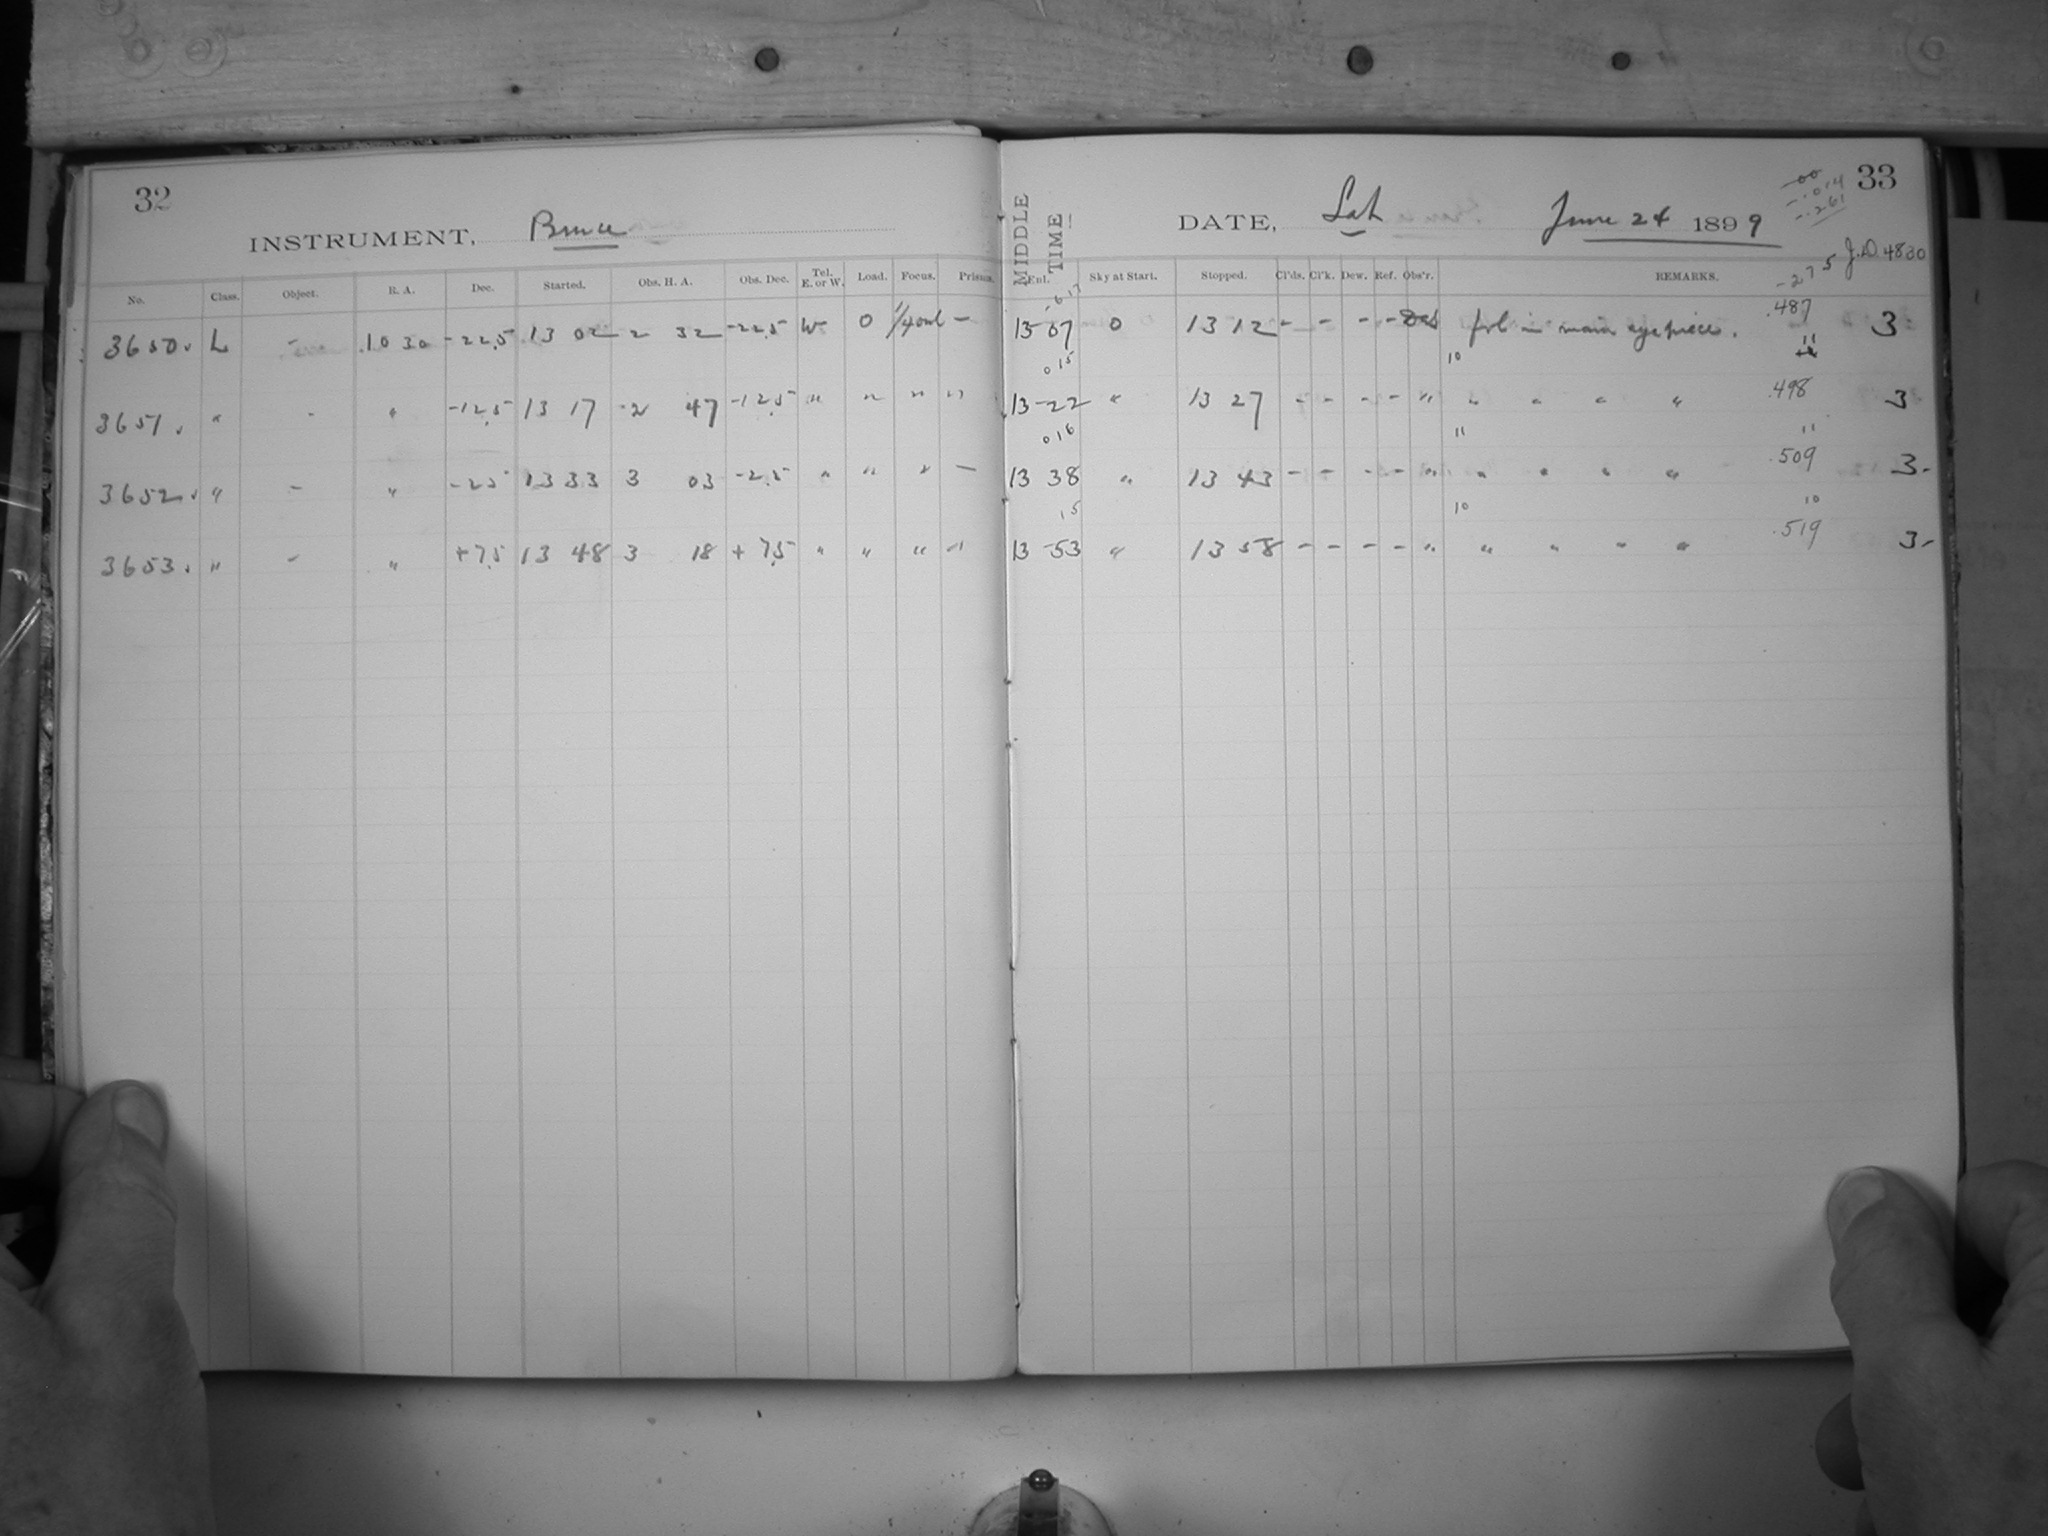 32
INSTRUMENT, Bruce
No. Class. Object. R. A. Dec. Started. Obs. H. A. Obs. Dec. Tel. E. or W. Load. Focus. Prisms.
3650. L - 10 30 -22.5 13 02 2 32 -22.5 W 0 1/4 out -
3651. " - " -12.5 13 17 2 47 -12.5 " " " "
3652. " - " -2.5 13 33 3 03 -2.5 " " " -
3653. " - " +7.5 13 48 3 18 +7.5 " " " "
33
-.014
-.261
MIDDLE TIME
DATE, Sat June 24 1899
-275 J.D. 4830
Ent. Sky at Start. Stopped. Cl'ds. Cl'k. Dew. Ref. Obs'r. REMARKS.
.487
13 07 0 13 12 - - - - fol in main eyepiece. 3
015 10 11
.498
13 22 " 13 27 - - - - " " " " " 3
016 11 11
.509
13 38 " 13 43 - - - - " " " " " 3.
15 10 10
.519
13 53 " 13 58 - - - - " " " " " 3.